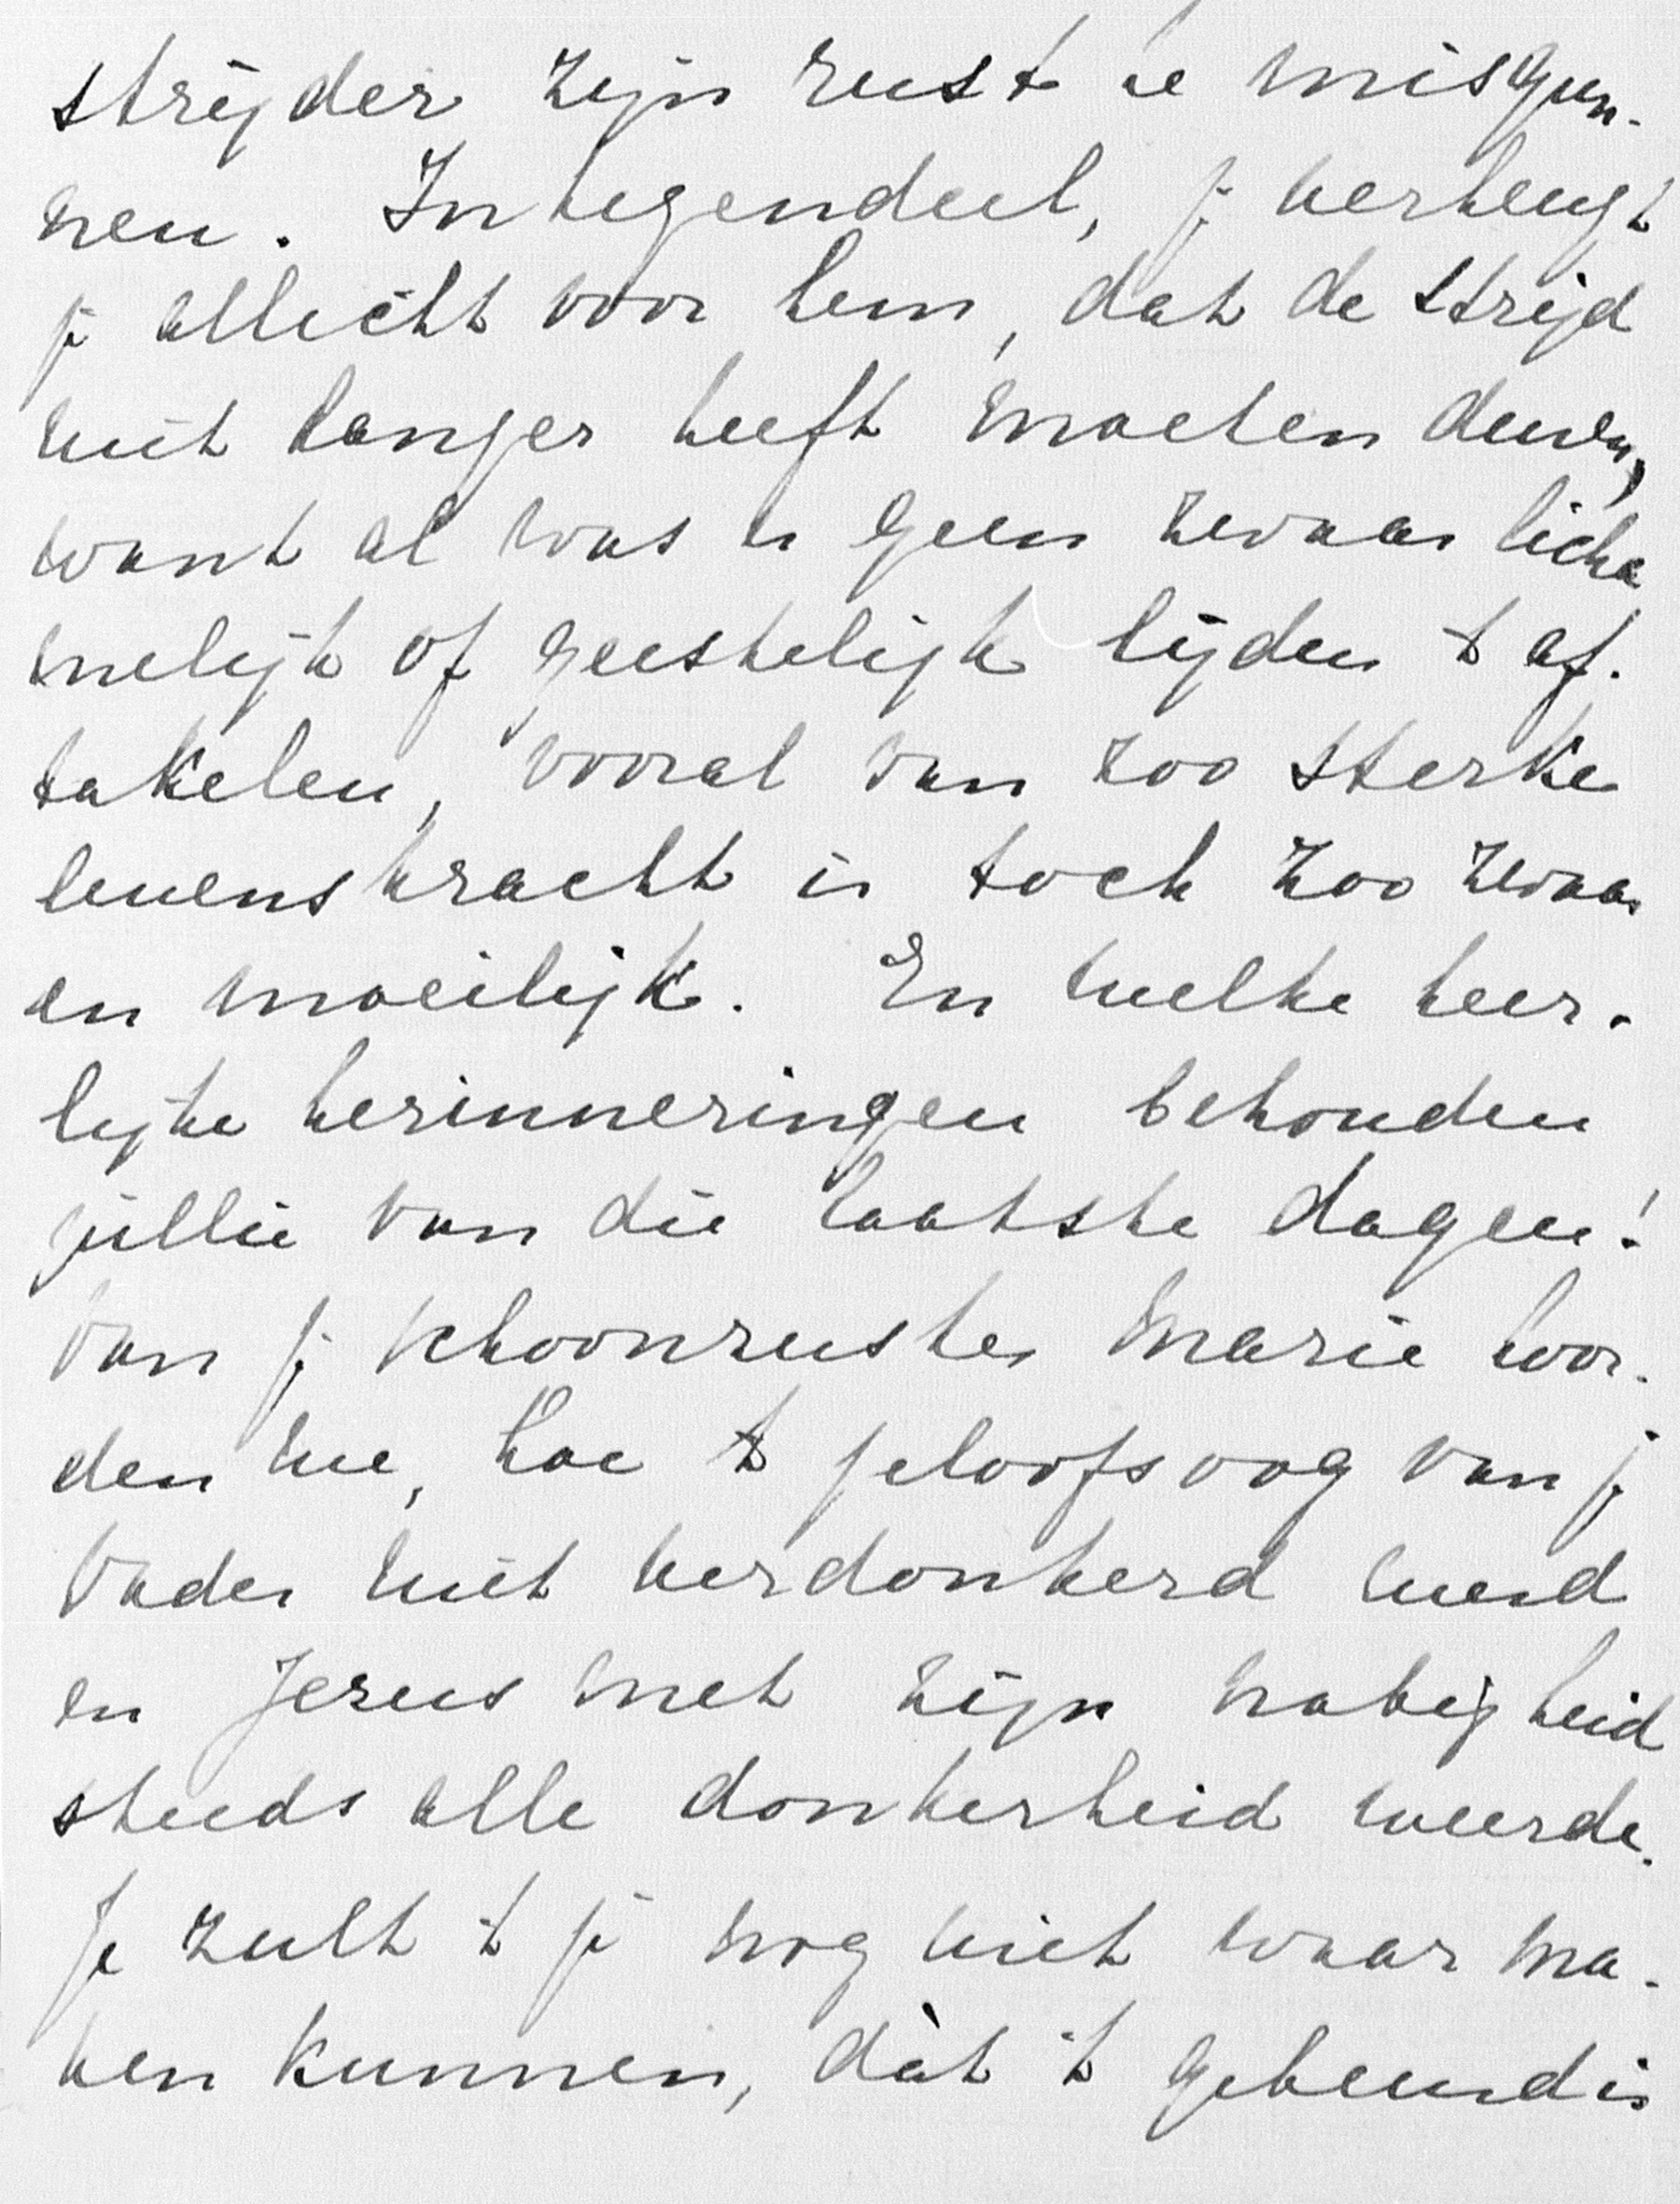 strijder zijn rust te misgun-
nen. Integendeel, je verheugt
je allicht voor hem, dat de strijd
niet langer heeft moeten duren,
want al was er geen zwaar licha
melijk of geestelijk lijden 't af-
takelen, vooral van zoo sterke
levenskracht is toch zoo zwaar
en moeilijk. En welke heer-
lijke herinneringen behouden
jullie van die laatste dagen!
Van je schoonzuster Marie hoor-
den we, hoe 't geloofsoog van je
Vader niet verdonkerd werd
en Jezus met zijn nabijheid
steeds alle donkerheid weerde.
Je zult 't je nog niet waar ma-
ken kunnen, dàt 't gebeurd is